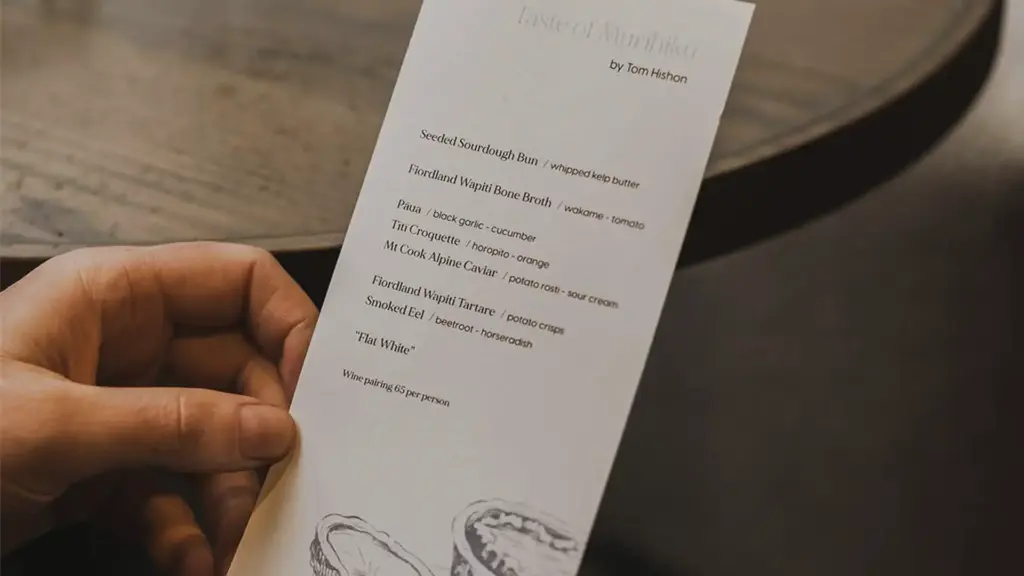 Taste of Murihiku
by Tom Hishon
Seeded Sourdough Bun / whipped kelp butter
Fiordland Wapiti Bone Broth / wakame - tomato
Pāua / black garlic - cucumber
Tītī Croquette / horopito - orange
Mt Cook Alpine Caviar / potato rosti - sour cream
Fiordland Wapiti Tartare / potato crisps
Smoked Eel / beetroot - horseradish
"Flat White"
Wine pairing 65 per person